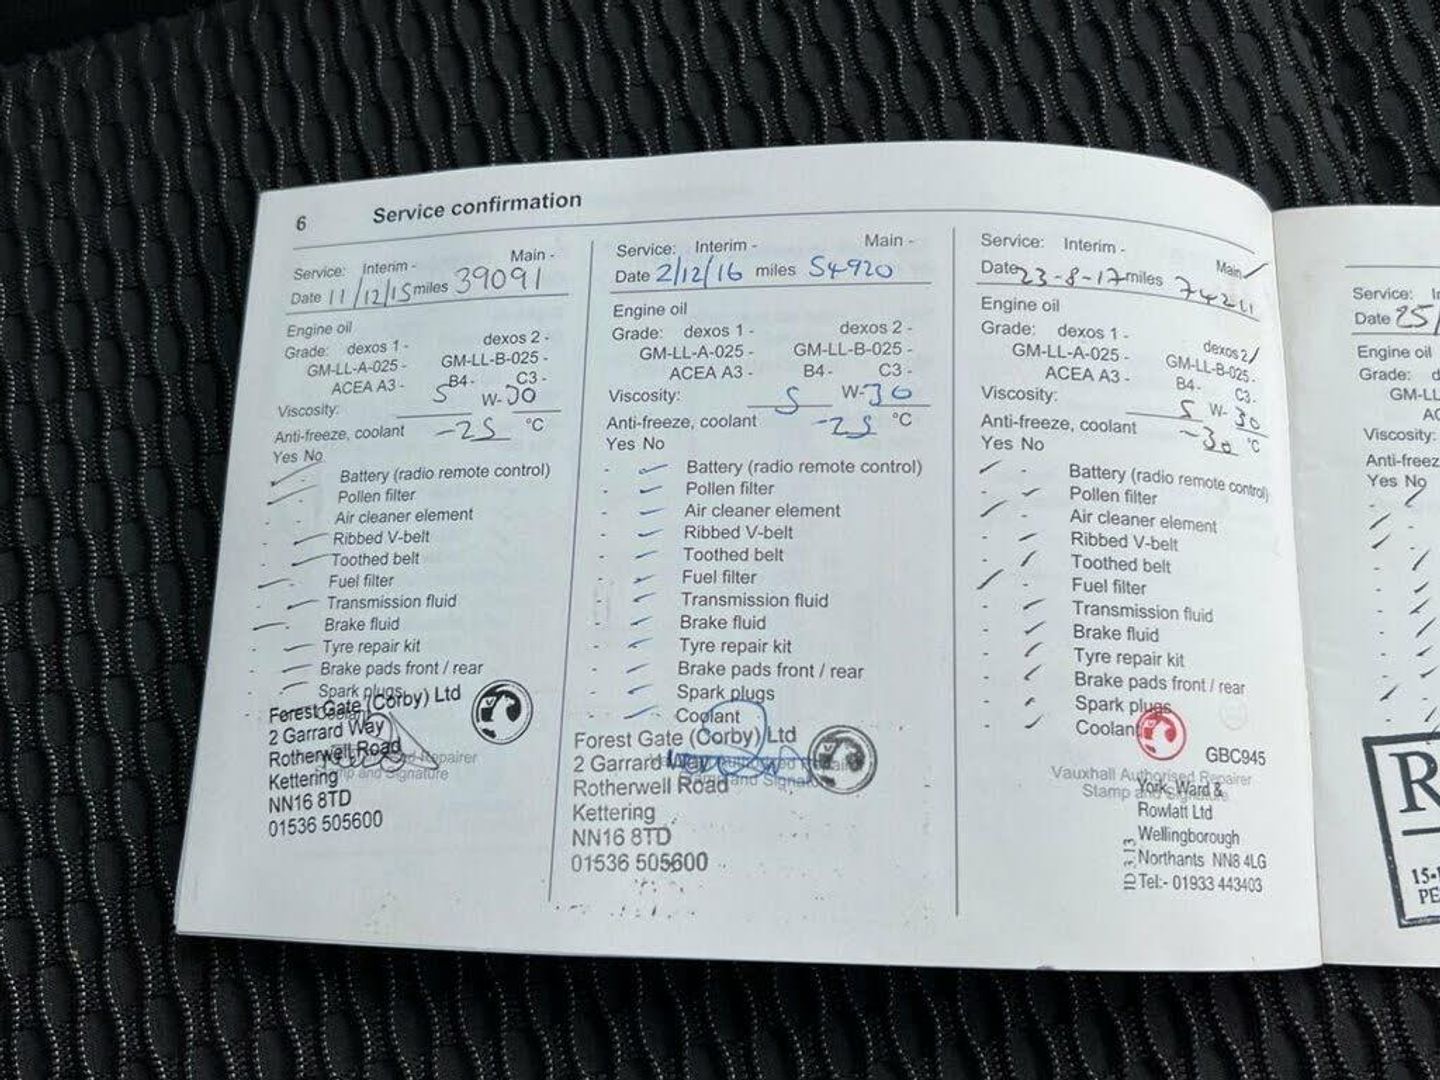 6 Service confirmation
Service: Interim - Main -
Date 11/12/15 miles 39091
Engine oil
Grade: dexos 1 - dexos 2 -
GM-LL-A-025 - GM-LL-B-025 -
ACEA A3 - B4 - C3 -
Viscosity: 5 W- 30
Anti-freeze, coolant -25 °C
Yes No
Battery (radio remote control)
Pollen filter
Air cleaner element
Ribbed V-belt
Toothed belt
Fuel filter
Transmission fluid
Brake fluid
Tyre repair kit
Brake pads front / rear
Spark plugs
Forest Gate (Corby) Ltd
2 Garrard Way
Rotherwell Road
Kettering
NN16 8TD
01536 505600
Service: Interim - Main -
Date 2/12/16 miles 54920
Engine oil
Grade: dexos 1 - dexos 2 -
GM-LL-A-025 - GM-LL-B-025 -
ACEA A3 - B4 - C3 -
Viscosity: 5 W- 30
Anti-freeze, coolant -25 °C
Yes No
Battery (radio remote control)
Pollen filter
Air cleaner element
Ribbed V-belt
Toothed belt
Fuel filter
Transmission fluid
Brake fluid
Tyre repair kit
Brake pads front / rear
Spark plugs
Coolant
Forest Gate (Corby) Ltd
2 Garrard Way
Rotherwell Road
Kettering
NN16 8TD
01536 505600
Service: Interim - Main
Date 23-8-17 miles 74211
Engine oil
Grade: dexos 1 - dexos 2
GM-LL-A-025 - GM-LL-B-025 -
ACEA A3 - B4 - C3 -
Viscosity: 5 W- 30
Anti-freeze, coolant -30 °C
Yes No
Battery (radio remote control)
Pollen filter
Air cleaner element
Ribbed V-belt
Toothed belt
Fuel filter
Transmission fluid
Brake fluid
Tyre repair kit
Brake pads front / rear
Spark plugs
Coolant
GBC945
Vauxhall Authorised Repairer
Stamp and Signature
York, Ward &
Rowlatt Ltd
Wellingborough
Northants NN8 4LG
Tel:- 01933 443403
ID 3.13
Service:
Date 25/
Engine oil
Grade:
GM-LL
AC
Viscosity:
Anti-freez
Yes No
R
15-
PE